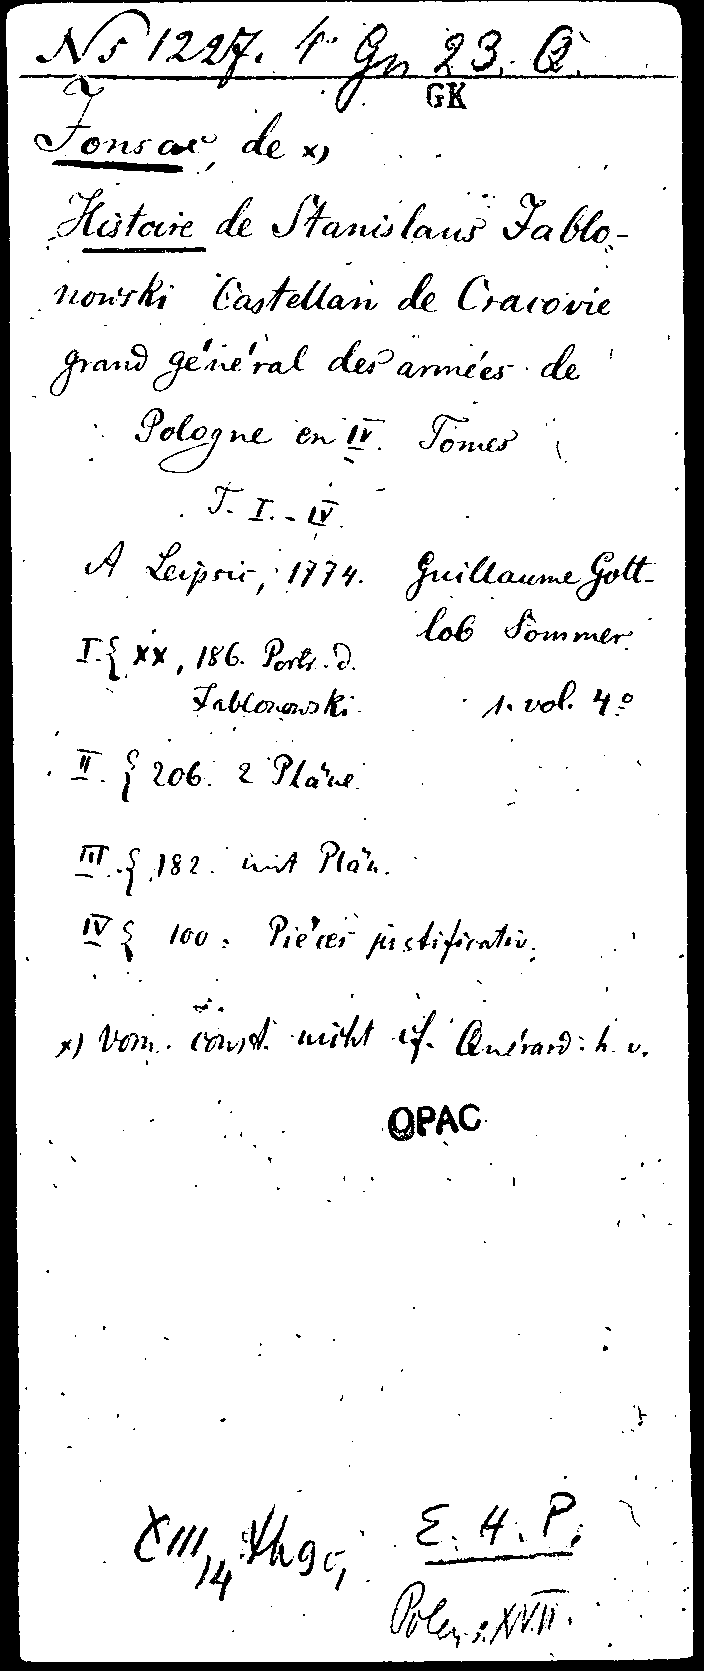 Ns 1227. 4° Gn 23. Q.
GK
Jonsac, de x)
Histoire de Stanislaus Jablo-
nowski Castellan de Cracovie
grand général des armées de
Pologne en IV. Tomes
T. I. - IV.
A Leipsic, 1774. Guillaume Gott-
lob Sommer.
I. { XX, 186. Portr. d.
Jablonowski. 1. vol. 4°
II. { 206. 2 Pläne.
III. { 182. mit Plän.
IV { 100. Pièces justificativ.
x) Vorn. const. nicht cf. Quérard: h. v.
OPAC
XIII, 14
E. H. P.
Polen s. XVII.